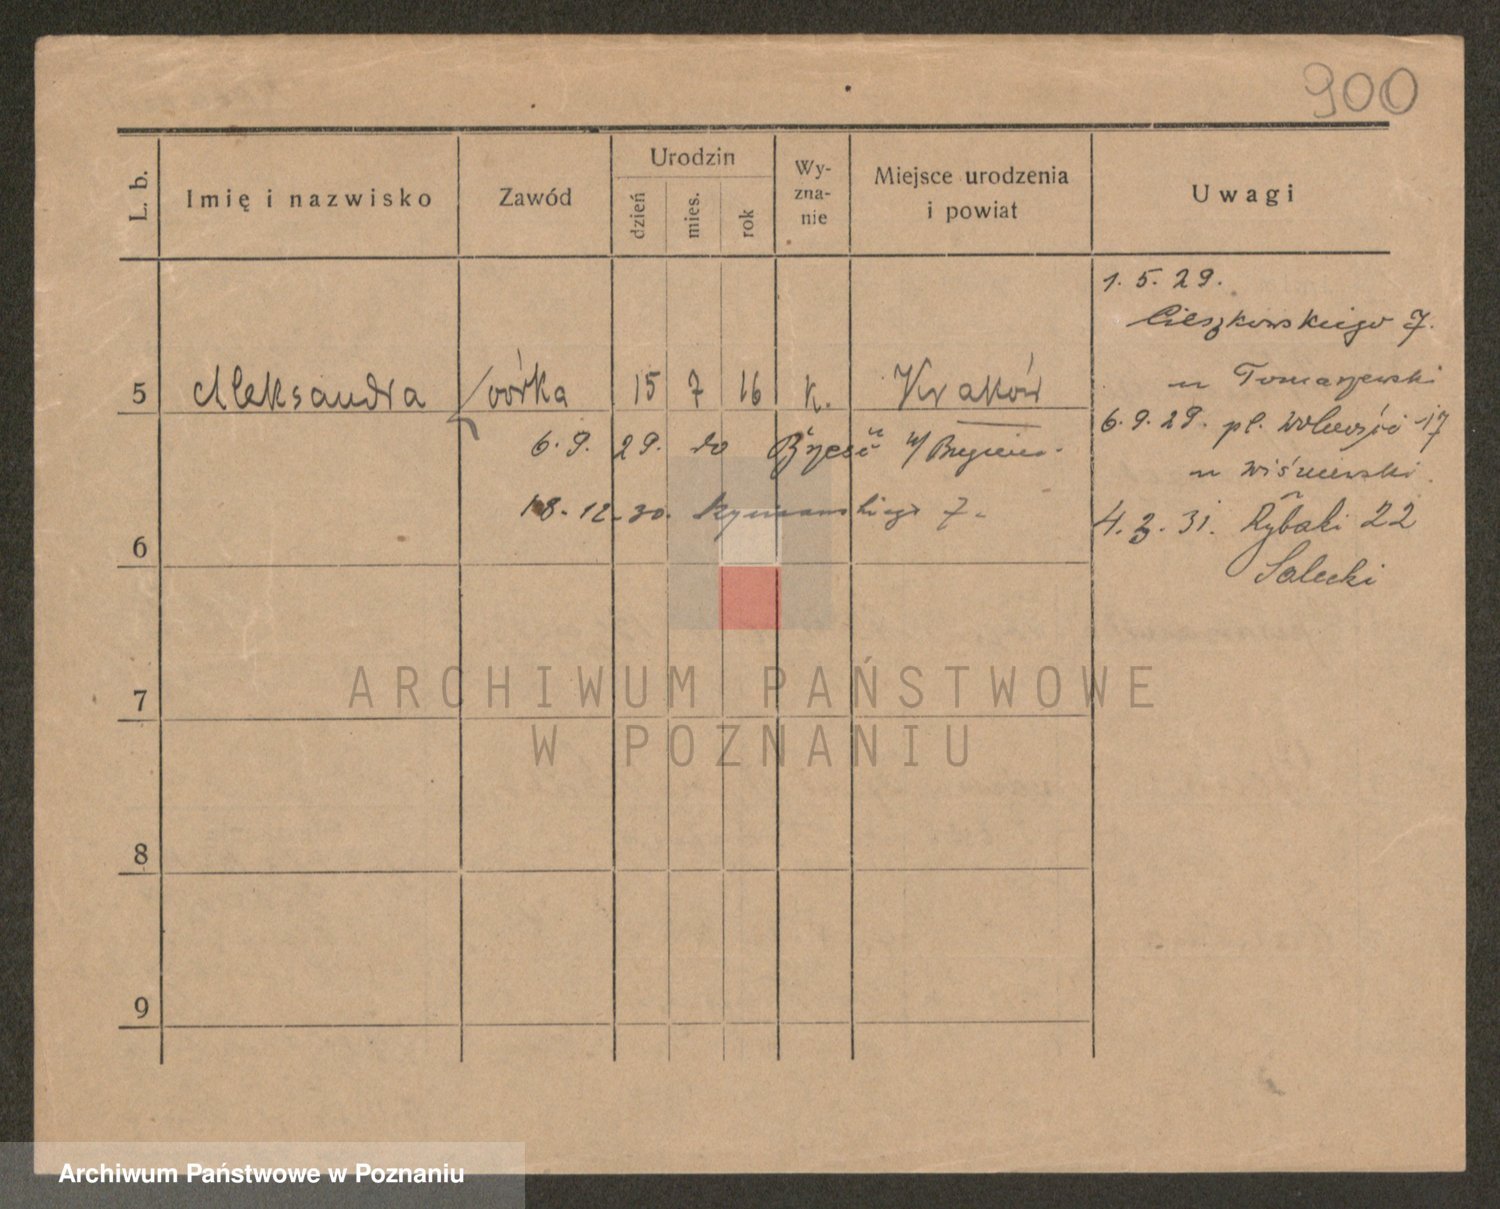 900
L. b.
Imię i nazwisko
Zawód
Urodzin
dzień
mies.
rok
Wy-
zna-
nie
Miejsce urodzenia
i powiat
Uwagi
1. 5. 29.
Cieszkowskiego 7.
u Tomaszewski
5 Aleksandra córka 15 7 16 k. Kraków
6. 9. 29. pl. Wolności 17
6. 9. 29. do Brześć n/
u Wiśniewski.
18. 12. 30. 7.
4. 3. 31. Rybaki 22
Salecki
6
7
8
9
ARCHIWUM PAŃSTWOWE
W POZNANIU
Archiwum Państwowe w Poznaniu